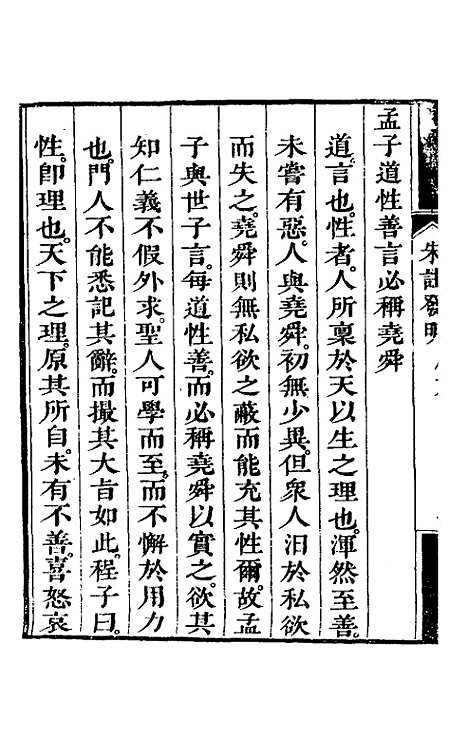 孟子道性善言必稱堯舜
道言也。性者。人所稟於天以生之理也。渾然至善。
未嘗有惡。人與堯舜。初無少異。但衆人汩於私欲
而失之。堯舜則無私欲之蔽而能充其性爾。故孟
子與世子言。每道性善。而必稱堯舜以實之。欲其
知仁義不假外求。聖人可學而至。而不懈於用力
也。門人不能悉記其辭。而撮其大旨如此。程子曰。
性。卽理也。天下之理。原其所自。未有不善。喜怒哀